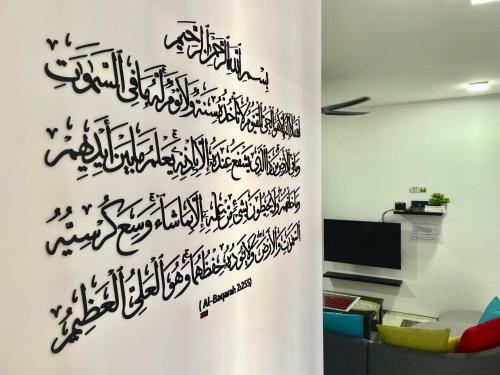 بسم الله الرحمن الرحيم
الله لا إله إلا هو الحي القيوم لا تأخذه سنة ولا نوم له ما في السموت
وما في الأرض من ذا الذي يشفع عنده إلا بإذنه يعلم ما بين أيديهم
وما خلفهم ولا يحيطون بشيء من علمه إلا بما شاء وسع كرسيه
السموت والأرض ولا يئوده حفظهما وهو العلي العظيم
( Al-Baqarah 2:255)